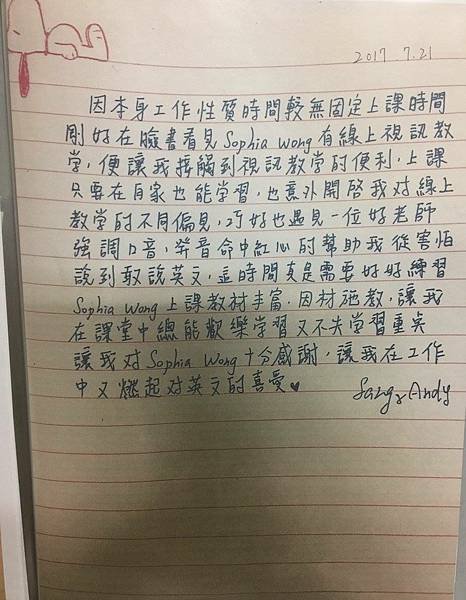 2017.7.21
因本身工作性質時間較無固定上課時間
剛好在臉書看見Sophia Wong有線上視訊教
学，便讓我接觸到視訊教学的便利，上課
只要在自家也能学習，也意外開啓我对線上
教学的不同偏見，巧好也遇見一位好老師
強調口音，発音命中紅心的幫助我從害怕
說到敢說英文，這時間真是需要好好練習
Sophia Wong上課教材丰富，因材施教，讓我
在課堂中總能歡樂学習又不失学習重点
讓我对Sophia Wong十分感謝，讓我在工作
中又燃起对英文的喜愛♥
Andy